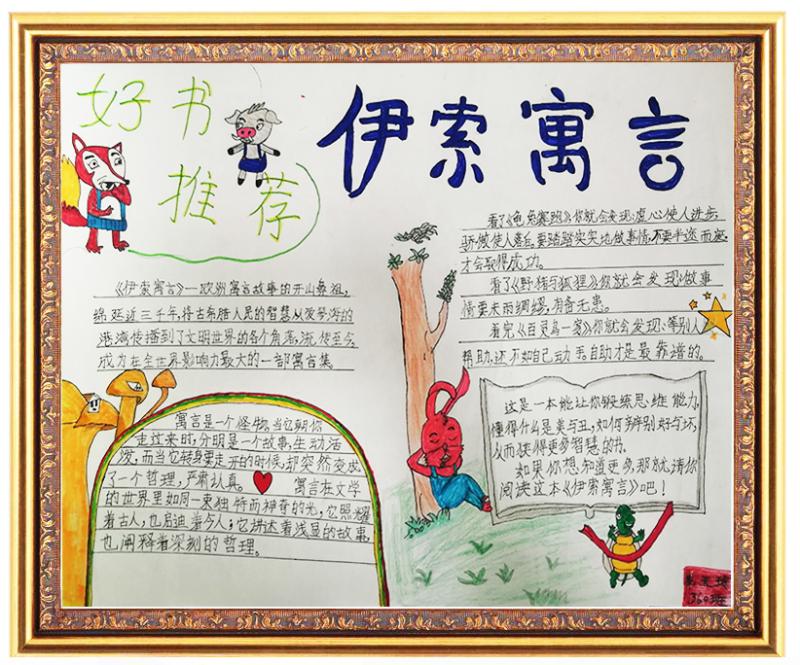 好书
推荐
伊索寓言
《伊索寓言》—欧洲寓言故事的开山鼻祖,
绵延近三千年,将古希腊人民的智慧从爱琴海的
港湾传播到了文明世界的各个角落,流传至今,
成为在全世界影响力最大的一部寓言集。
寓言是一个怪物,当它朝你
走过来时,分明是一个故事,生动活
泼,而当它转身要走开的时候,却突然变成
了一个哲理,严肃认真。 寓言在文学
的世界里如同一束独特而神奇的光,它照耀
着古人,也启迪着今人;它讲述着浅显的故事,
也阐释着深刻的哲理。
看了《龟兔赛跑》你就会发现:虚心使人进步,
骄傲使人落后,要踏踏实实地做事情,不要半途而废,
才会取得成功。
看了《野猪与狐狸》你就会发现:做事
情要未雨绸缪,有备无患。
看完《百灵鸟一家》你就会发现:等别人
帮助,还不如自己动手。自助才是最靠谱的。
这是一本能让你锻练思维能力,
懂得什么是美与丑,如何辨别好与坏,
从而获得更多智慧的书。
如果你想知道更多,那就请你
阅读这本《伊索寓言》吧!
360班